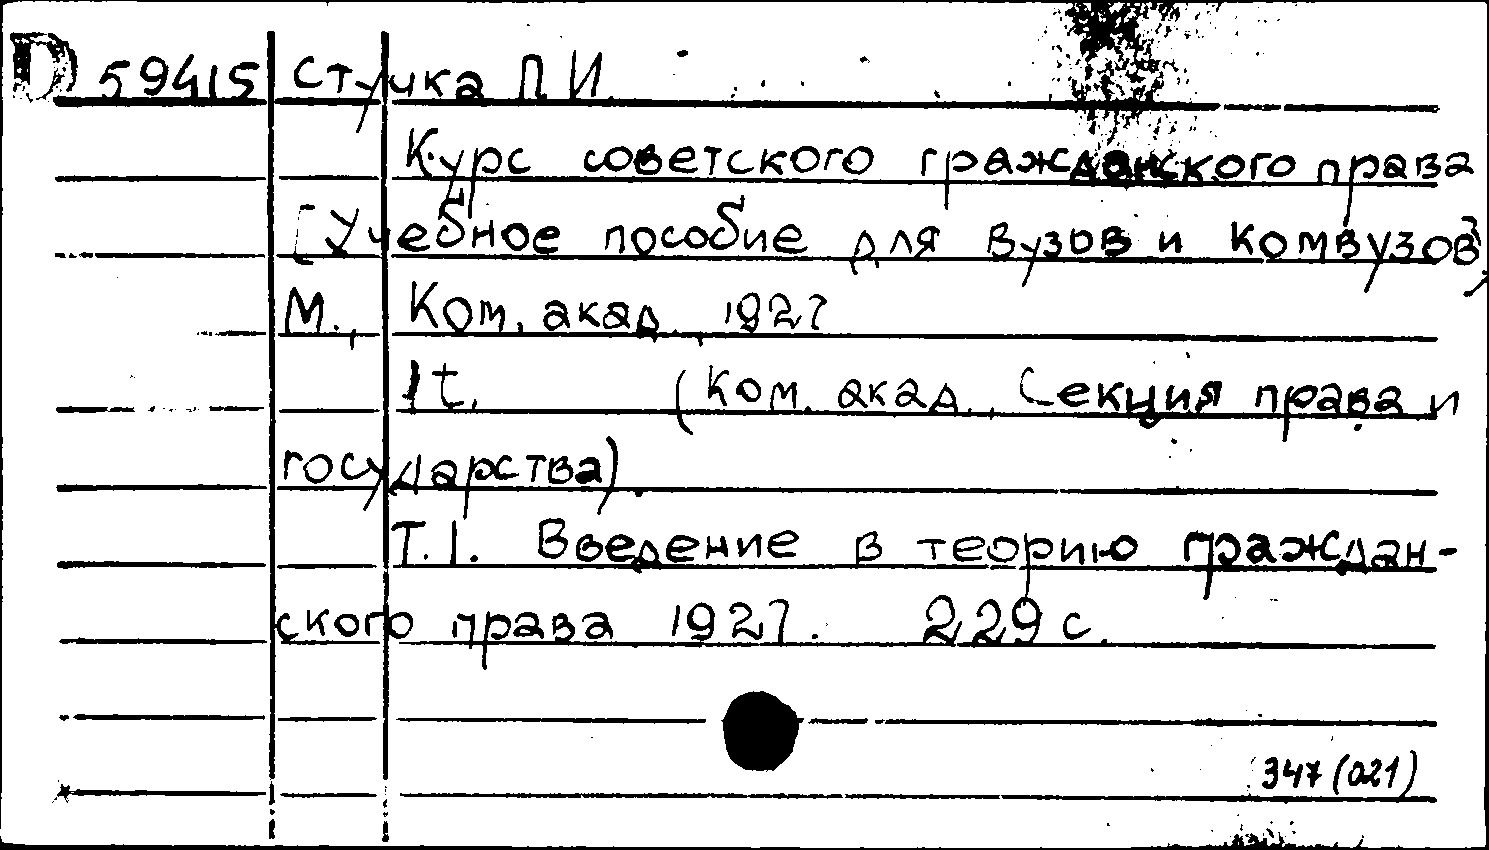 D 59415 Стучка П И.
Курс советского гражданского права
[Учебное пособие для вузов и комвузов],
М., Ком. акад., 1927
1 t. (Ком. акад., Секция права и
государства).
Т.1. Введение в теорию граждан-
ского права 1927. 229 с.
347(021)